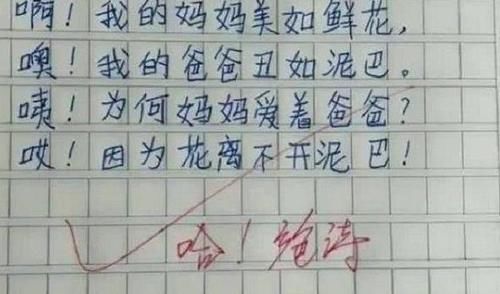 啊！我的妈妈美如鲜花，
噢！我的爸爸丑如泥巴。
咦！为何妈妈爱着爸爸？
哎！因为花离不开泥巴！
哈！绝诗